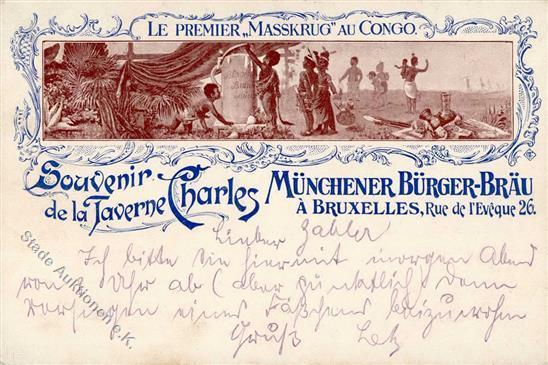 LE PREMIER „MASSKRUG" AU CONGO.
Souvenir
de la Taverne Charles
MÜNCHENER BÜRGER-BRÄU
À BRUXELLES, Rue de l'Evêque 26.
Lieber Zahler
Ich bitte Sie hiermit morgen Abend
von Uhr ab (aber pünktlich) dem
eines Fäßchens beizuwohnen
Gruß
Stade Auktionen e.K.